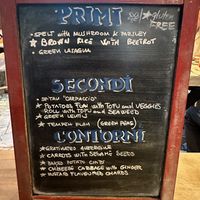 PRIMI
★ gluten FREE
- SPELT WITH MUSHROOM & PARSLEY
★ BROWN RICE WITH BEETROT
- GREEN LASAGNA
SECONDI
- SEITAN "CARPACCIO"
★ POTATOES FLAN WITH TOFU AND VEGGIES
ROLL WITH TOFU AND SEAWEED
★ GREEN LENTILS
★ TEMPEH FLAN (GREEN PEAS)
CONTORNI
★ GRATINATED AUBERGINE
★ CARROTS WITH SESAME SEEDS
★ BAKED POTATO
★ CHINESE CABBAGE WITH GINGER
★ FLAVOURED CHARDS